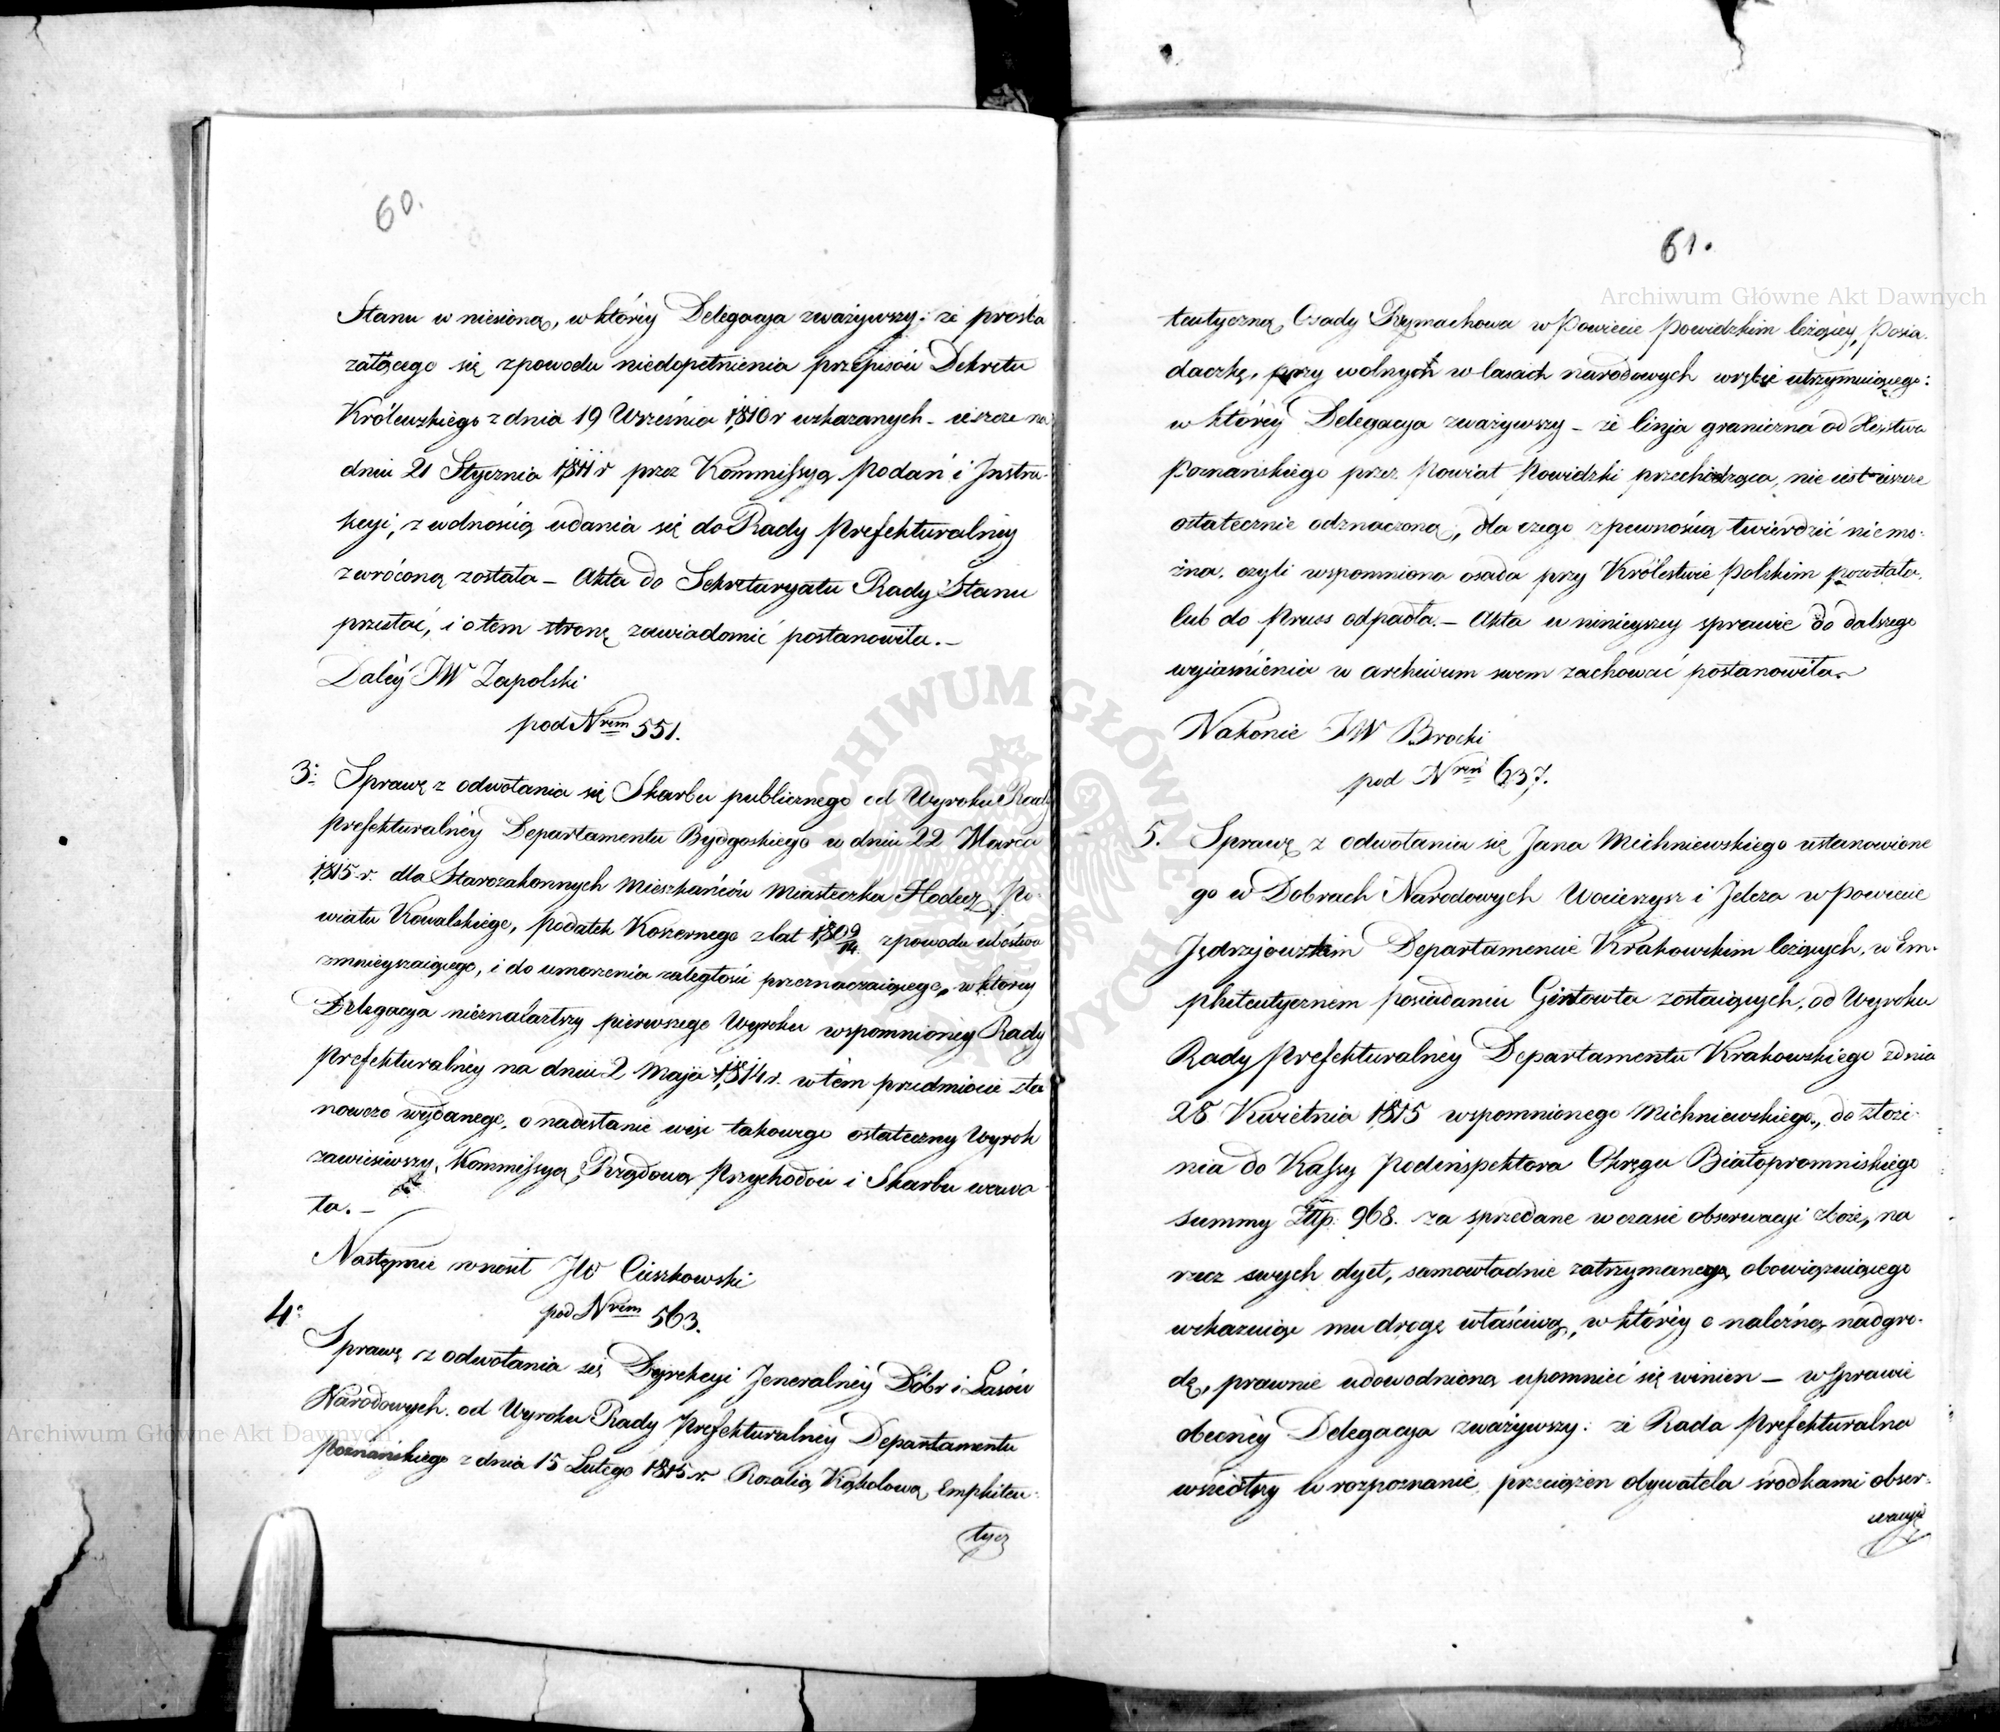 60.
Stanu wniesioną, w którey Delegacya zważywszy: że prośba
żalącego się z powodu niedopełnienia przepisów Dekretu
Królewskiego z dnia 19 Września 1810 r wskazanych – ieszcze na
dniu 21 Stycznia 1811 r przez Kommissyą Podań i Instru-
kcyi, z wolnością udania się do Rady Prefekturalney
zwróconą została – Akta do Sekretaryatu Rady Stanu
przesłać, i o tem stronę zawiadomić postanowiła. –
Daléy JW Zapolski
pod Nrem 551.
3. Sprawę z odwołania się Skarbu publicznego od Wyroku Rady
Prefekturalnéy Departamentu Bydgoskiego w dniu 22 Marca
1815 r. dla Starozakonnych Mieszkańców Miasteczka Hodecz Po-
wiatu Kowalskiego, podatek Koszernego z lat 1809/14. z powodu ubóstwa
zmnieyszaiącego, i do umorzenia zaległość przeznaczaiącego, w którey
Delegacya nieznalazłszy pierwszego Wyroku wspomnionéy Rady
Prefekturalnéy na dniu 2 Maja 1814 r. w tém przedmiocie sta
nowczo wydanego, o nadesłanie więc takowego ostateczny Wyrok
zawiesiwszy, Kommissyą Rządową Przychodów i Skarbu wezwa
ła. –
Następnie wnosił JW Cieszkowski
pod Nrem 563.
4. Sprawę z odwołania się Dyrekcyi Jeneralnéy Dóbr i Lasów
Narodowych od Wyroku Rady Prefekturalnéy Departamentu
Poznańskiego z dnia 15 Lutego 1815 r. Rozalią Kąkolową Emphiteu-
tycz
61.
teutyczną Osady Rymachowa w Powiecie Powidzkim leżącéy, Posia-
daczkę, przy wolnych w lasach narodowych wrębie utrzymuiącego:
w któréy Delegacya zważywszy – że linja graniczna od Xięstwa
Poznańskiego przez Powiat Powidzki przechodząca, nie iest ieszcze
ostatecznie odznaczoną, dla czego z pewnością twierdzić niemo-
żna, czyli wspomniona osada przy Królestwie Polskim pozostała,
lub do Pruss odpadła. – Akta w ninieyszey sprawie do dalszego
wyiaśnienia w archiwum swem zachować postanowiła
Nakonie JW Brocki
pod Nrem 637.
5. Sprawę z odwołania się Jana Michniewskiego ustanowione
go w Dobrach Narodowych Wocierzysz i Jelcza w Powiecie
Jędrzjowskim Departamencie Krakowskim leżących, w Em-
phiteutycznem posiadaniu Gintowta zostaiących, od Wyroku
Rady Prefekturalnéy Departamentu Krakowskiego z dnia
28 Kwietnia 1815 wspomnionego Michniewskiego, do złoże-
nia do Kassy Podinspektora Okręgu Białopromniskiego
Summy Złtp. 968. za sprzedane w czasie obserwacyi zboże, na
rzecz swych dyet, samowładnie zatrzymanego, obowiązuiącego
wskazuiąc mu drogę właściwą, w któréy o należną nadgro-
dę, prawnie udowodnioną upomnieć się winien – w sprawie
obecnéy Delegacya zważywszy: że Rada Prefekturalna
wszedłszy w rozpoznanie, przeciążeń obywatela środkami obser-
wacyi
Archiwum Główne Akt Dawnych
Archiwum Główne Akt Dawnych
ARCHIWUM GŁÓWNE AKT DAWNYCH